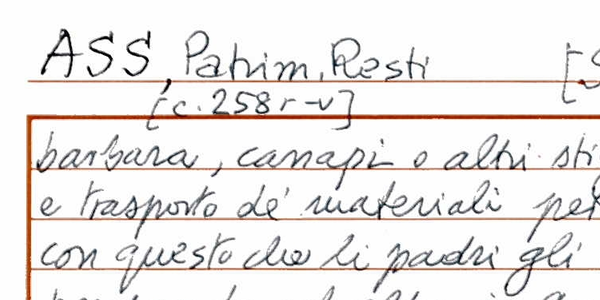 ASS, Patrim. Resti [S
[c. 258 r-v]
barbara, canapi o altri sti
e trasporto de' materiali per
con questo che li padri gli